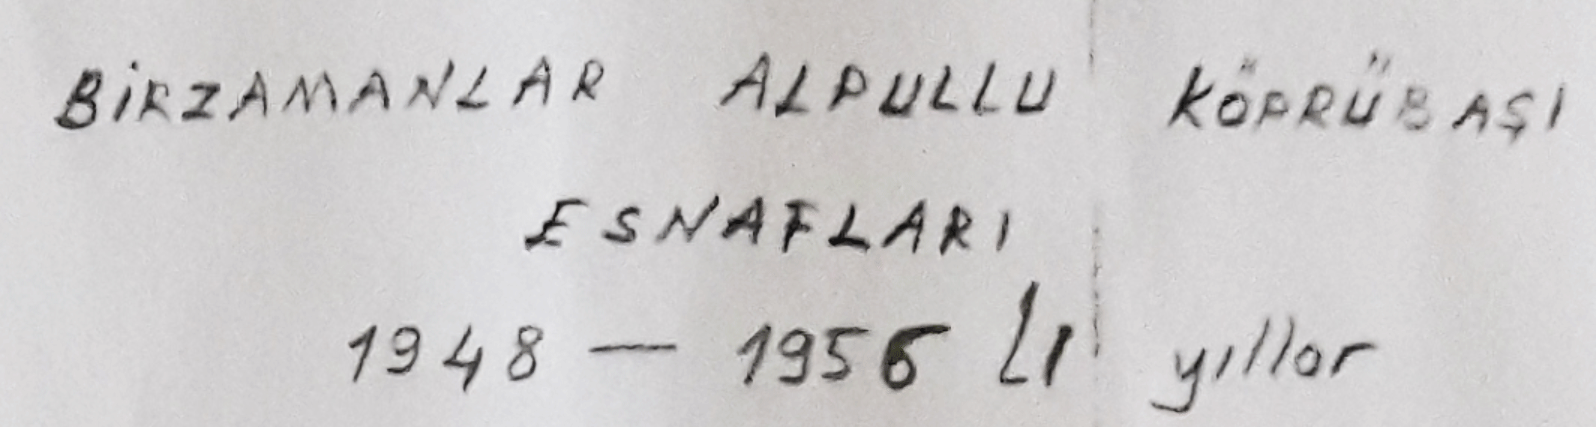 BİRZAMANLAR ALPULLU KÖPRÜBAŞI
ESNAFLARI
1948 — 1956 Lı yıllar